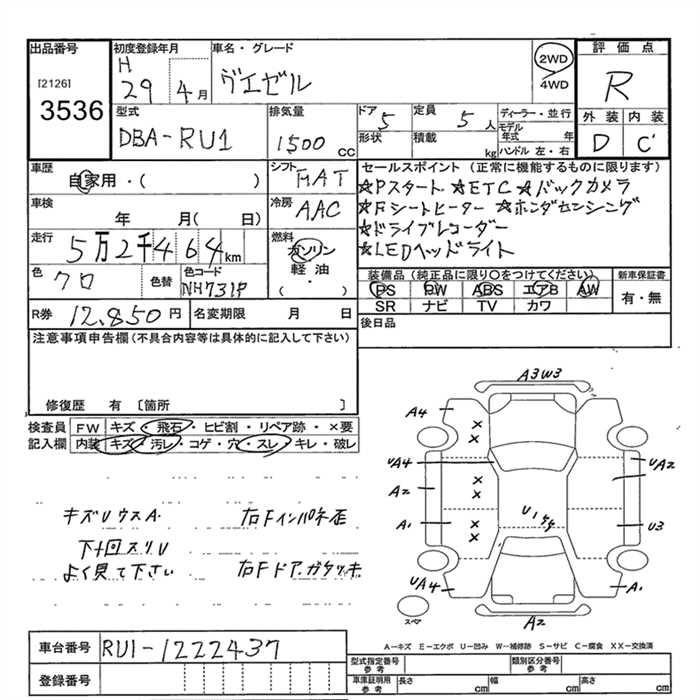 出品番号
[2126]
3536
初度登録年月
H
29 4月
車名・グレード
ヴェゼル
2WD
4WD
評価点
R
外装 内装
D C'
型式
DBA-RU1
排気量
1500 CC
ドア 5
形状
定員 5人
積載 kg
ディーラー・並行
モデル
年式 年
ハンドル 左・右
車歴
自家用・( )
シフト
FAAT
セールスポイント (正常に機能するものに限ります)
☆Pスタート ☆ETC ☆バックカメラ
☆Fシートヒーター ☆ホンダセンシング
☆ドライブレコーダー
☆LEDヘッドライト
車検
年 月( 日)
冷房
AAC
走行
5万2千464km
燃料
ガソリン
軽油
( ・ )
色
クロ
色替
色コード
NH731P
装備品 (純正品に限り〇をつけてください)
PS PW ABS エアB AW
SR ナビ TV カワ
新車保証書
有・無
R券 12,850円
名変期限 月 日
後日品
注意事項申告欄(不具合内容等は具体的に記入して下さい)
修復歴 有 〔箇所 〕
検査員
記入欄
FW キズ・飛石・ヒビ割・リペア跡・×要
内装 キズ・汚レ・コゲ・穴・スレ・キレ・破レ
キズUウスA.
右Fインパネ歪
下廻スリU
よく見て下さい
右Fドアガタツキ
A3W3
A4
×
×
UA4
UA2
A2
×
×
U1
A1
×
×
U3
UA4
A1
スペア
A2
A-キズ E-エクボ U-凹み W-補修跡 S-サビ C-腐食 XX-交換済
車台番号 RU1-1222437
登録番号
型式指定番号
参考
類別区分番号
参考
車庫証明用
参考
長さ cm
幅 cm
高さ cm